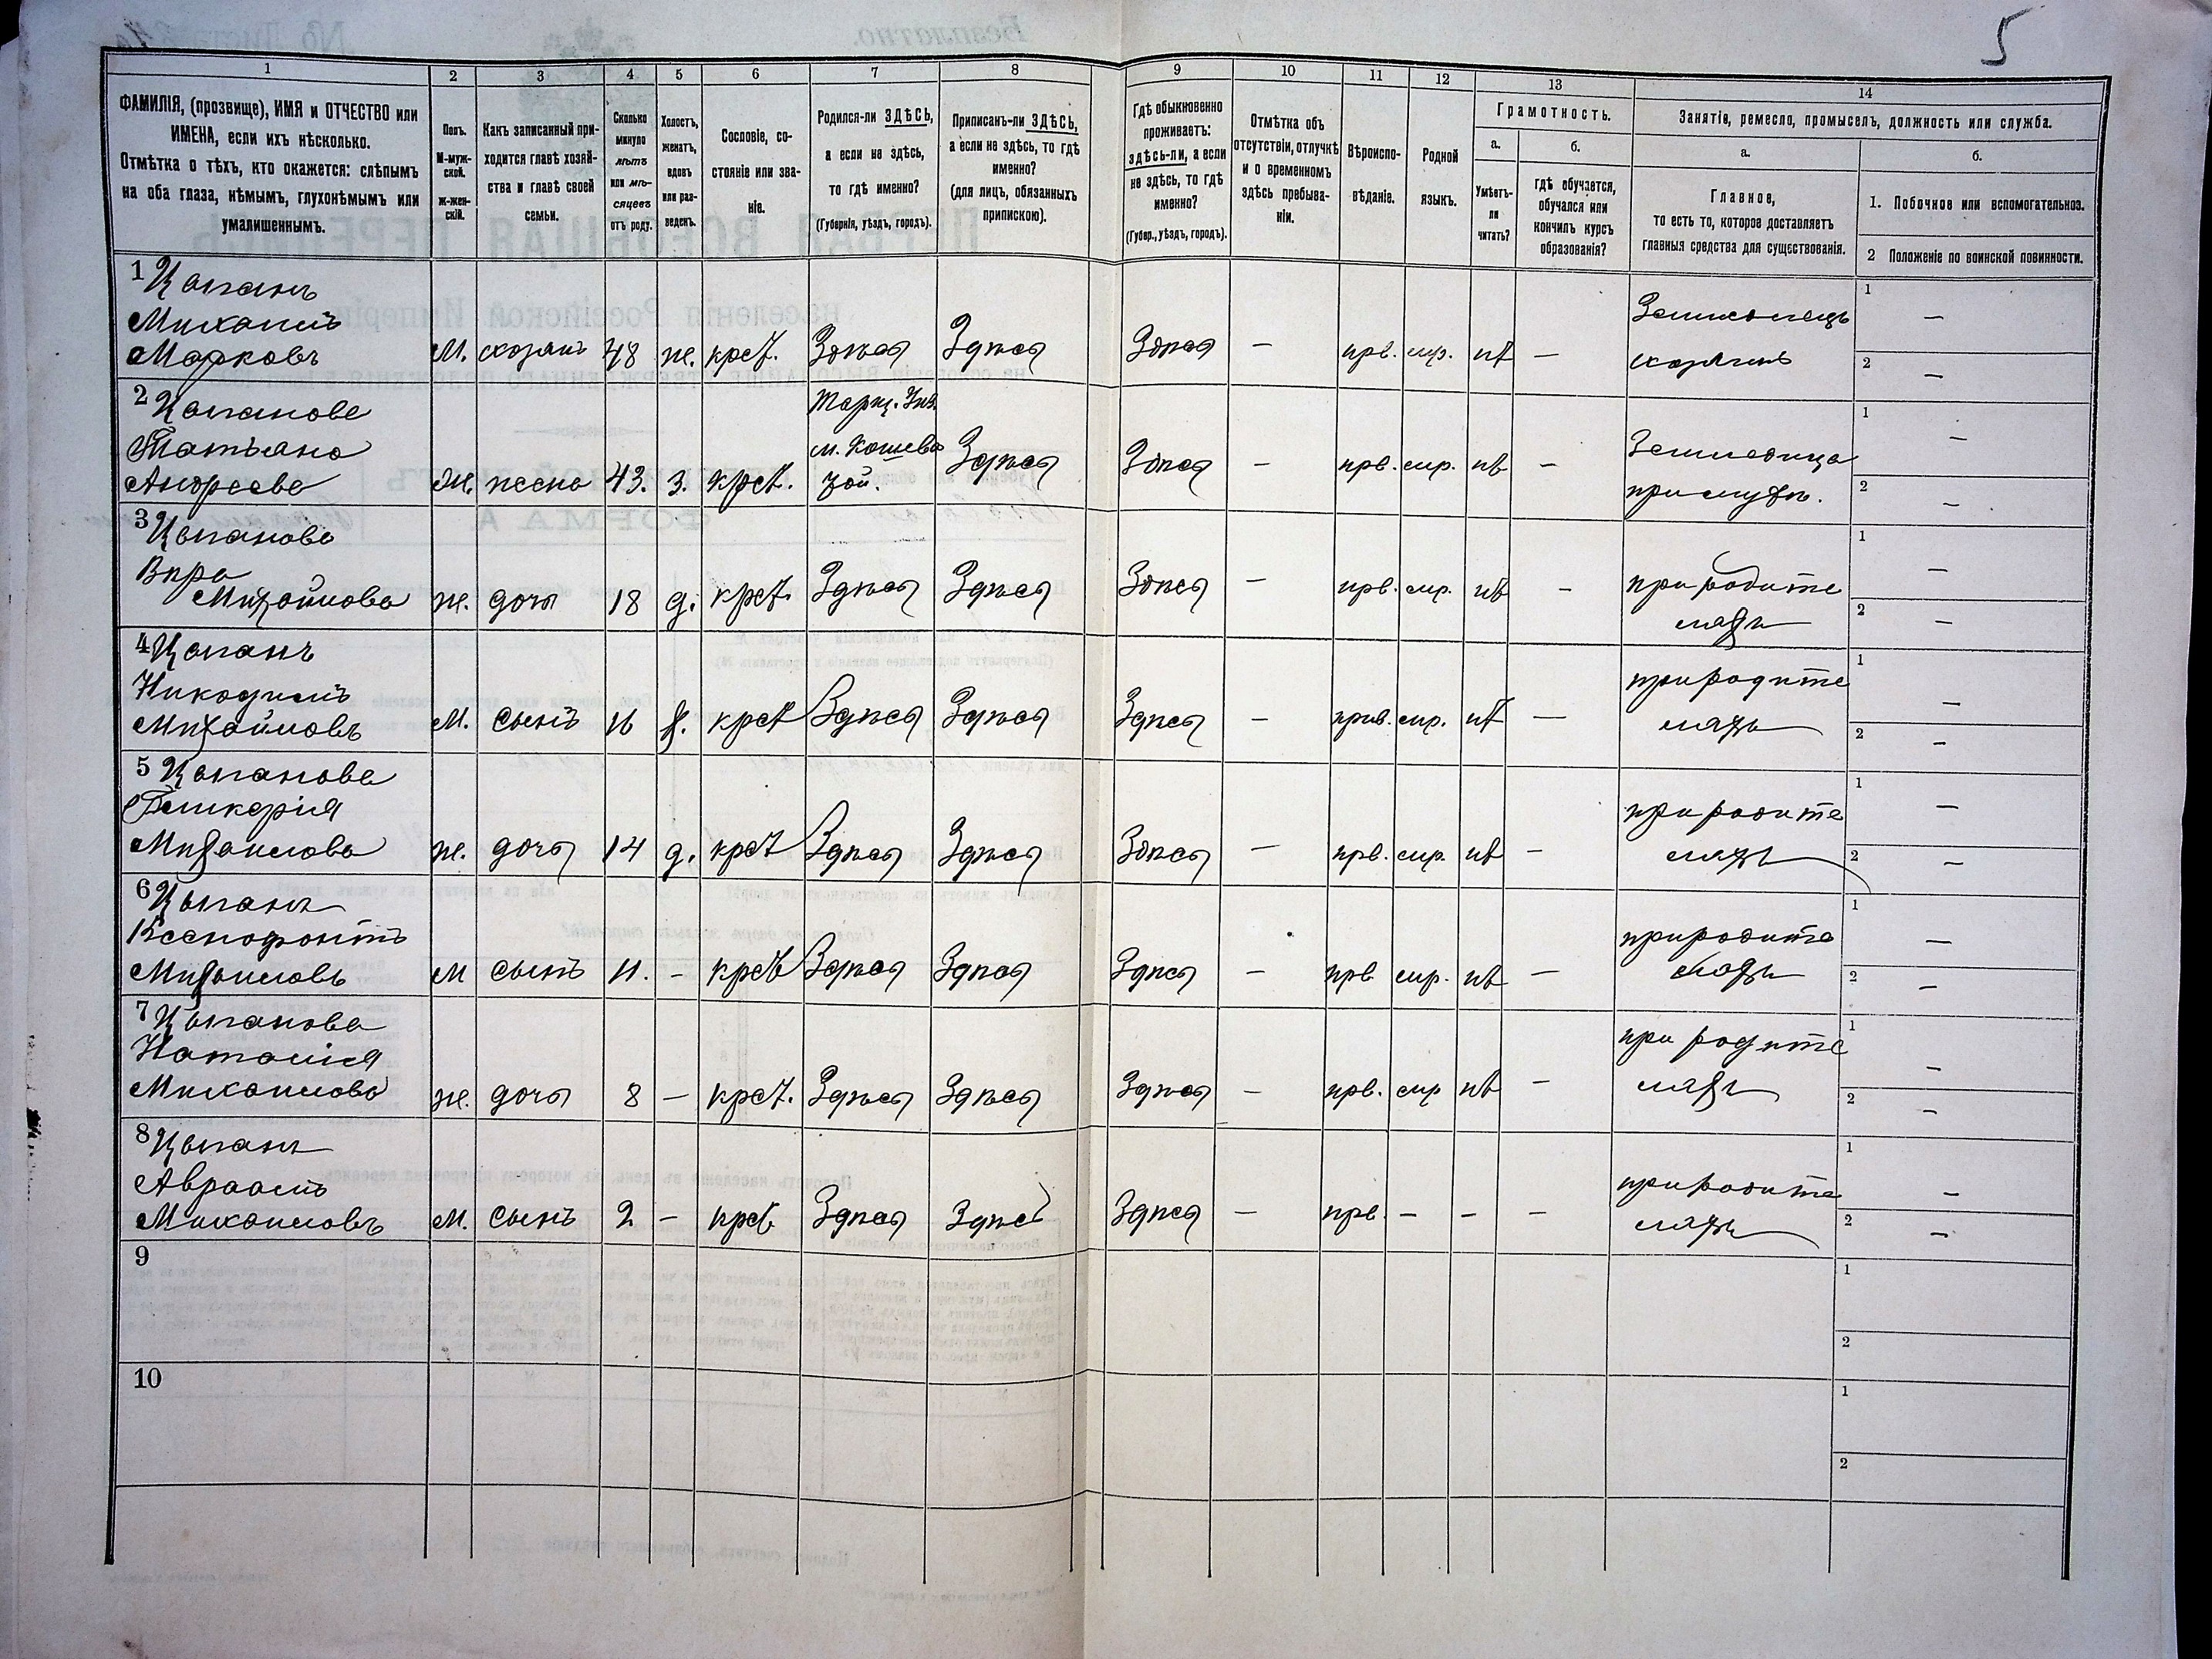 5
1 2 3 4 5 6 7 8 9 10 11 12 13 14
ФАМИЛІЯ, (прозвище), ИМЯ и ОТЧЕСТВО или
ИМЕНА, если ихъ нѣсколько.
Отмѣтка о тѣхъ, кто окажется: слѣпымъ
на оба глаза, нѣмымъ, глухонѣмымъ или
умалишеннымъ.
Полъ.
М-муж-
ской.
ж-жен-
скій.
Какъ записанный при-
ходится главѣ хозяй-
ства и главѣ своей
семьи.
Сколько
минуло
лѣтъ
или мѣ-
сяцевъ
отъ роду.
Холостъ,
женатъ,
вдовъ
или раз-
веденъ.
Сословіе, со-
стояніе или зва-
ніе.
Родился-ли ЗДѢСЬ,
а если не здѣсь,
то гдѣ именно?
(Губернія, уѣздъ, городъ).
Приписанъ-ли ЗДѢСЬ,
а если не здѣсь, то гдѣ
именно?
(для лицъ, обязанныхъ
припискою).
Гдѣ обыкновенно
проживаетъ:
здѣсь-ли, а если
не здѣсь, то гдѣ
именно?
(Губер., уѣздъ, городъ).
Отмѣтка объ
отсутствіи, отлучкѣ
и о временномъ
здѣсь пребыва-
ніи.
Вѣроиспо-
вѣданіе.
Родной
языкъ.
Грамотность.
а.
Умѣетъ-
ли
читать?
б.
гдѣ обучается,
обучался или
кончилъ курсъ
образованія?
Занятіе, ремесло, промыселъ, должность или служба.
а.
Главное,
то есть то, которое доставляетъ
главныя средства для существованія.
б.
1. Побочное или вспомогательное.
2 Положеніе по воинской повинности.
1 Цыганъ
Михаилъ
Марковъ М. хозяинъ 48 ж. крст. Здѣсь Здѣсь Здѣсь — прв. мр. нт —
хозяинъ
1 —
2 —
2 Цыганова
Татьяна
Андреева ж. жена 43. з. крст. Здѣсь Здѣсь — прв. мр. нт —
при мужѣ.
1 —
2 —
3 Цыганова
Вѣра
Михайлова ж. дочь 18 д. крст. Здѣсь Здѣсь Здѣсь — прв. мр. нт —
при родите
ляхъ
1 —
2 —
4 Цыганъ
Никодимъ
Михайловъ М. сынъ 16 х. крст Здѣсь Здѣсь Здѣсь — прав. мр. нт —
при родите
ляхъ
1 —
2 —
5 Цыганова
Гликерія
Михаилова ж. дочь 14 д. крст Здѣсь Здѣсь Здѣсь — прв. мр. нт —
при родите
ляхъ
1 —
2 —
6 Цыганъ
Ксенофонтъ
Михаиловъ М сынъ 11. - крст Здѣсь Здѣсь Здѣсь — прв. мр. нт —
при родите
ляхъ
1 —
2 —
7 Цыганова
Наталія
Михаилова ж. дочь 8 — крст. Здѣсь Здѣсь Здѣсь — прв. мр нт —
при родите
ляхъ
1 —
2 —
8 Цыганъ
Авраамъ
Михаиловъ М. сынъ 2 — крст Здѣсь Здѣсь Здѣсь — прв. — — —
при родите
ляхъ
1 —
2 —
9
1
2
10
1
2